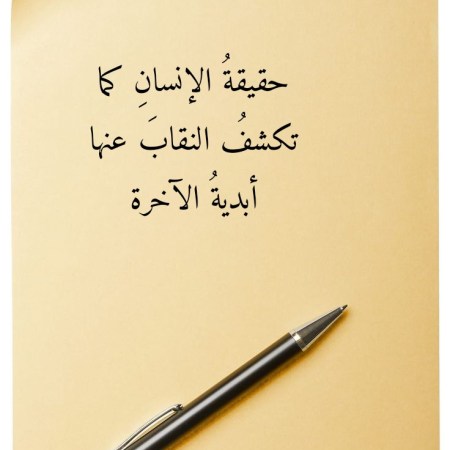 حقيقةُ الإنسانِ كما
تكشفُ النقابَ عنها
أبديةُ الآخرة